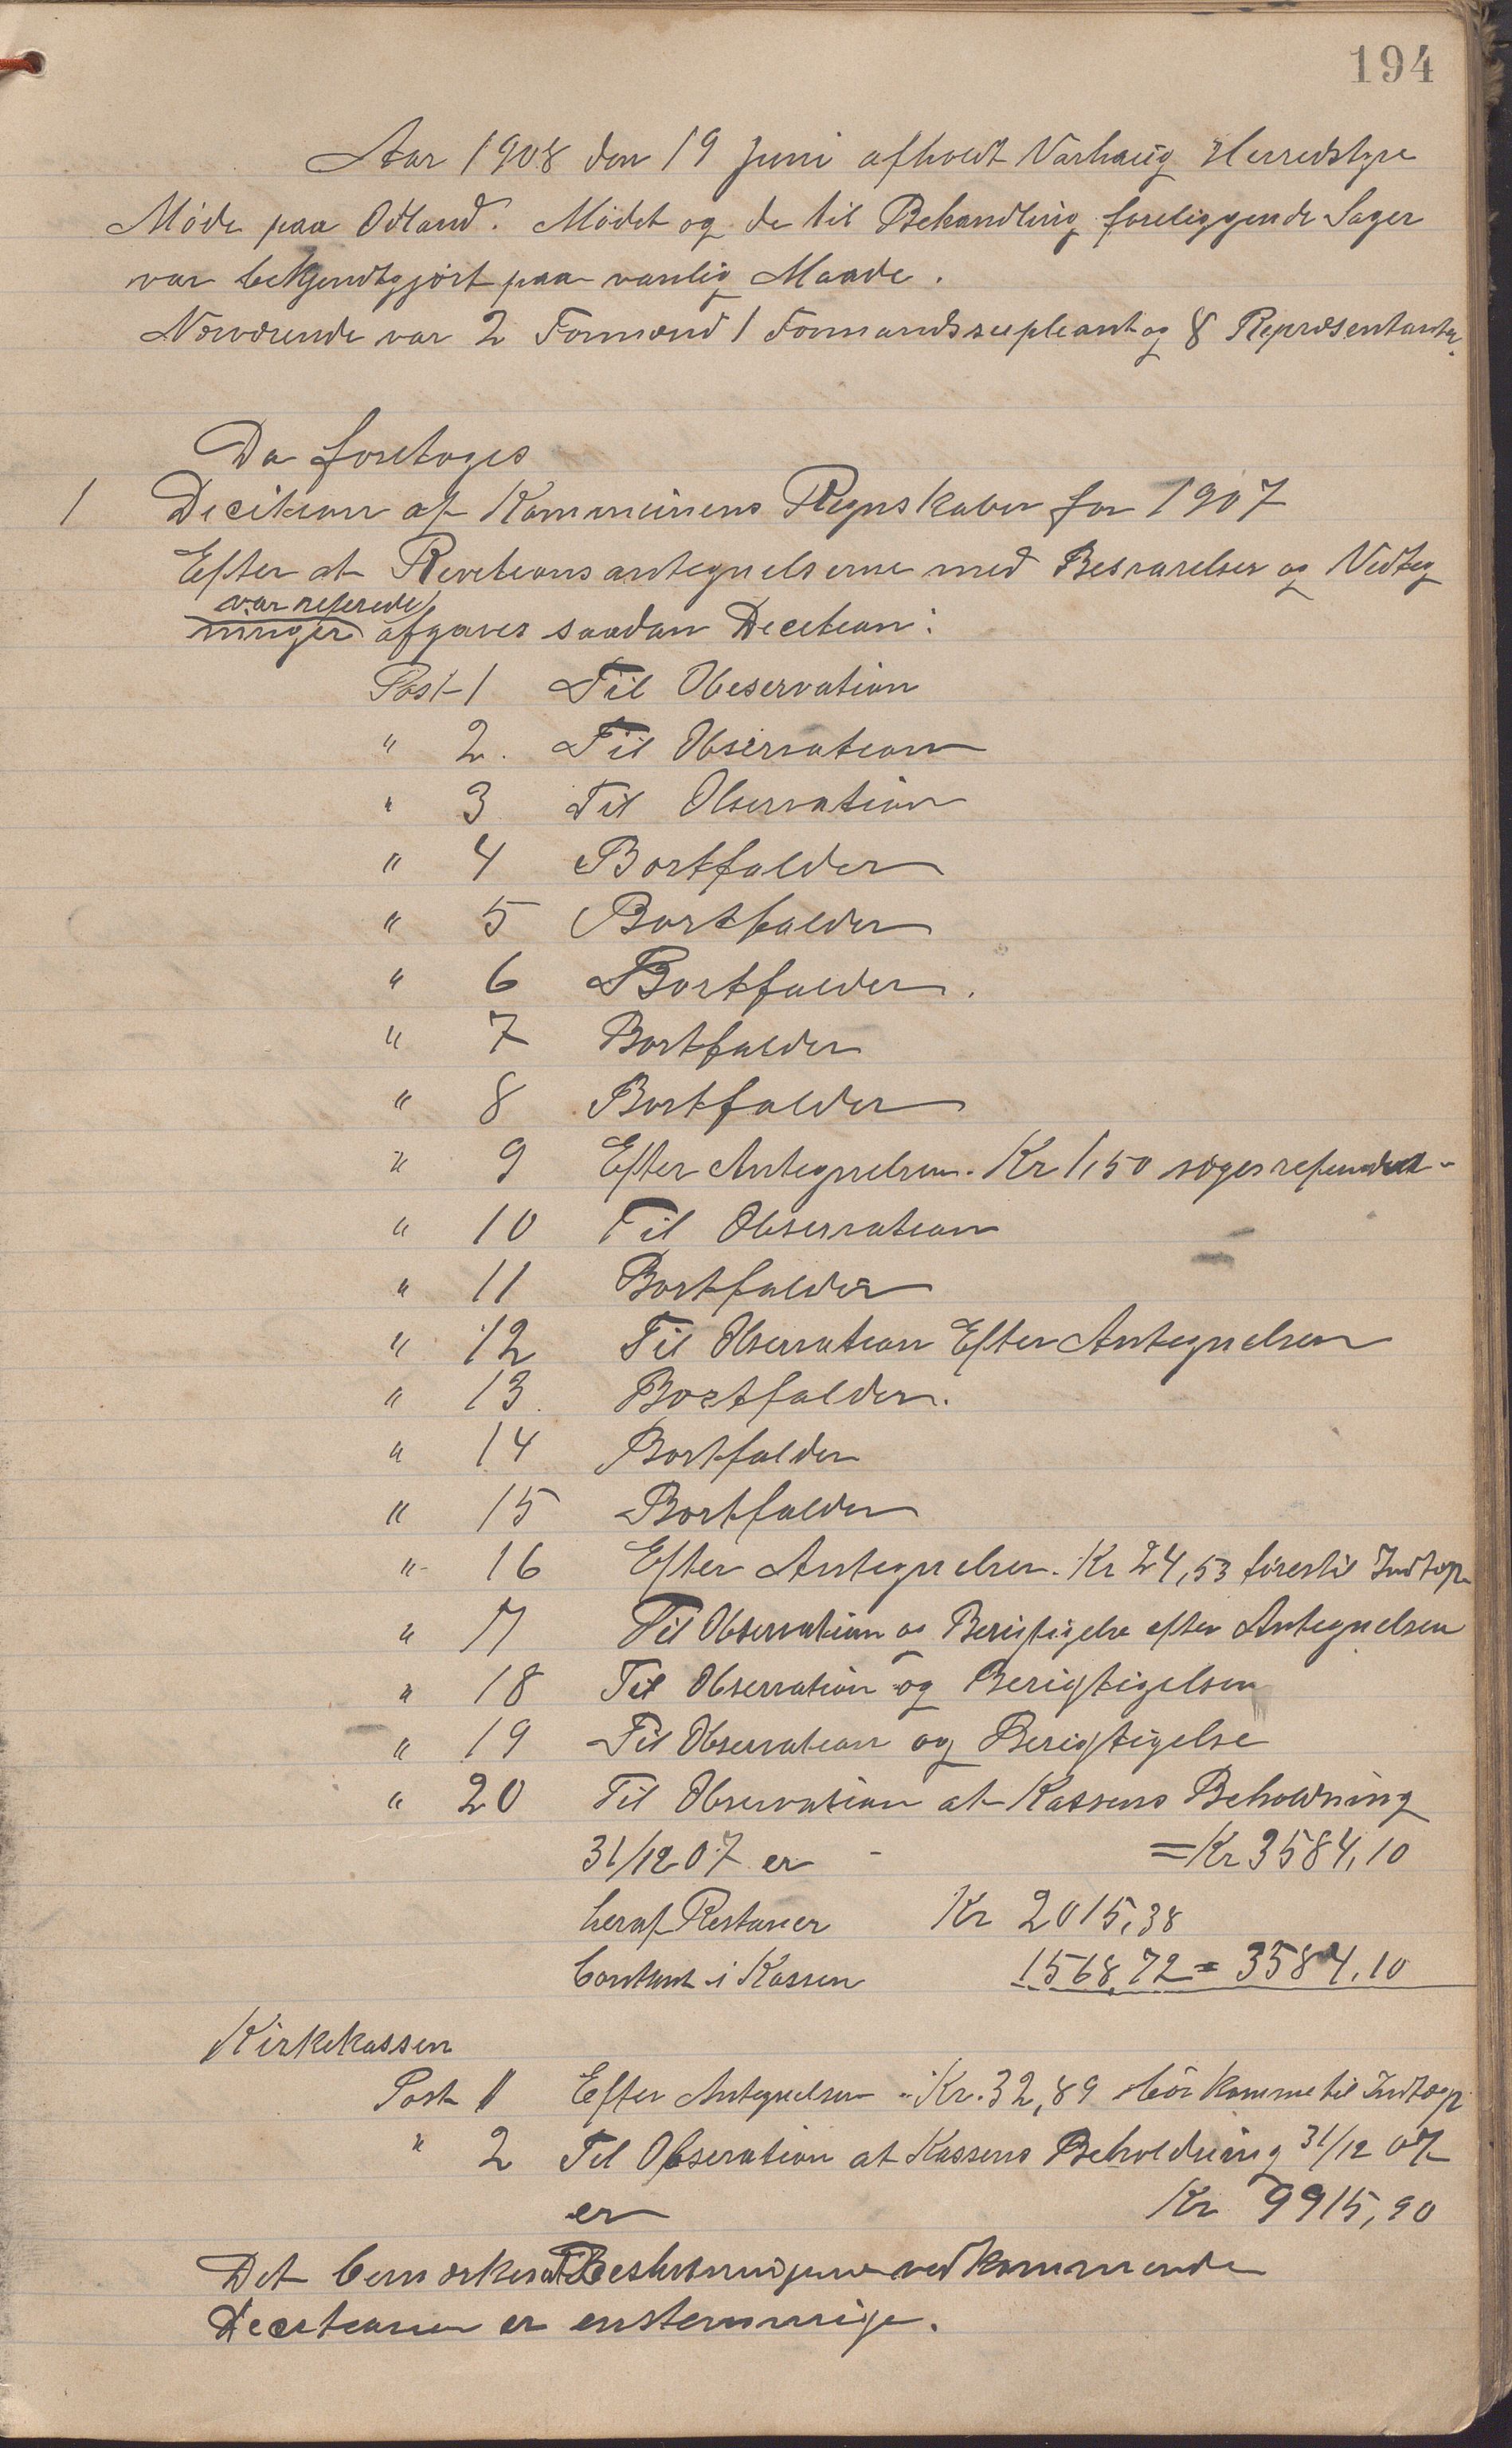 194
Aar 1908 den 19 Juni afholdt Varhaug Herredstyre
Møde paa Ødland. Mødet og de til Behandling foreliggende Sager
var bekjendtgjört paa vanlig Maade.
Nærværende var 2 Formænd 1 Formandssupleant og 8 Repræsentanter.
Da foretoges
1 Decition af Kommunens Regnskaber for 1907
Efter at Revitionsantegnelserne med Besvarelser og Vedteg
var referede
ninger afgaves saadan Decition:
Post 1 Til Obeservation
" 2. Til Observation
" 3 Til Observation
" 4 Bortfalder
" 5 Bortfalder
" 6 Bortfalder.
" 7 Bortfalder
" 8 Bortfalder
" 9 Efter Antegnelsen. Kr 1,50 søges refunderet
" 10 Til Observation
" 11 Bortfalder
" 12 Til Observation Efter Antegnelsen
" 13. Bortfalder.
" 14 Bortfalder
" 15 Bortfalder
" 16 Efter Antegnelsen. Kr 24,53 föres til Indtægt
" 17 Til Observation og Berigtigelse efter Antegnelsen
" 18 Til Observation og Berigtigelsen
" 19 Til Observation og Berigtigelse
" 20 Til Observation at Kassens Beholdning
31/12 07 er - = Kr 3584,10
heraf Restancer Kr 2015,38
Contant i Kassen 1568,72 = 3584,10
Kirkekassen
Post 1 Efter Antegnelsen " Kr. 32,89 bör komme til Indtægt
" 2 Til Obseration at Kassens Beholdning 31/12 07
er Kr 9915,90
Det bemærkes at Beslutningene vedkommende
Decitionen er enstemmige.